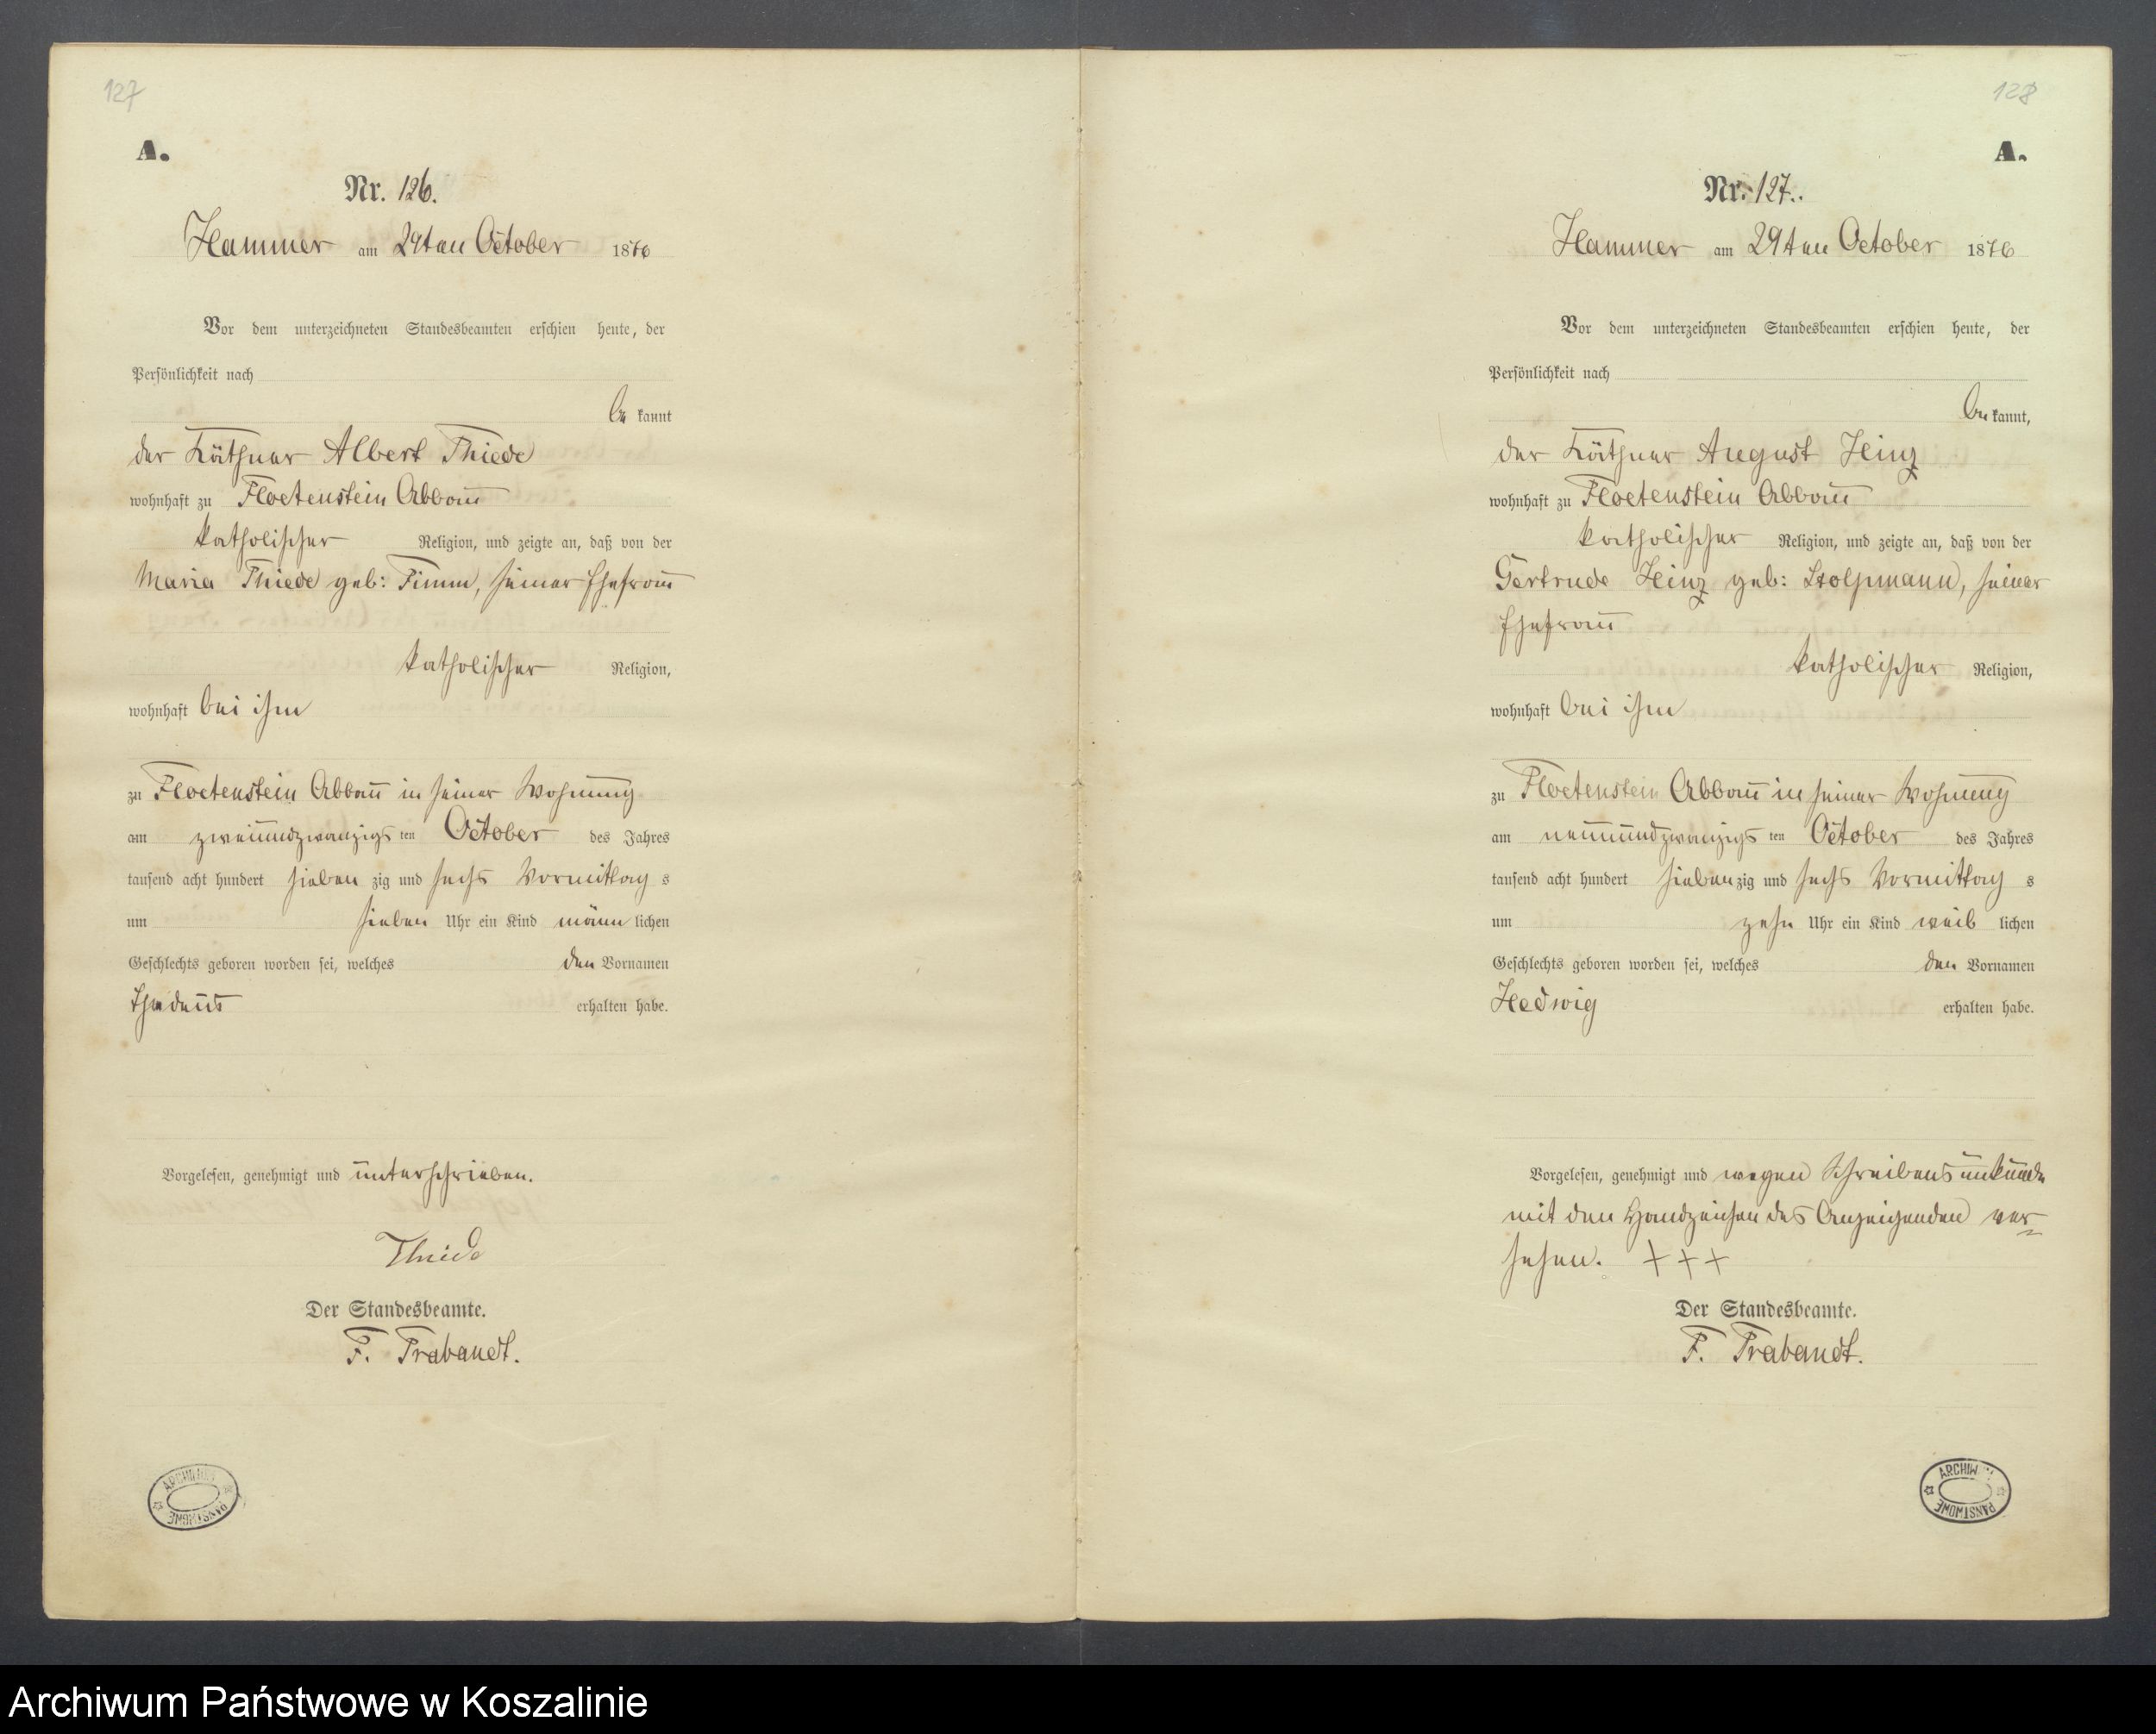 127
A.
Nr. 126.
Hammer am 29ten October 1876
Vor dem unterzeichneten Standesbeamten erschien heute, der
Persönlichkeit nach
be kannt
der Käthner Albert Thiede
wohnhaft zu Floetenstein Abbau
katholischer Religion, und zeigte an, daß von der
Maria Thiede geb: Timm, seiner Ehefrau
katholischer Religion,
wohnhaft bei ihm
zu Floetenstein Abbau in seiner Wohnung
am zweiundzwanzigs ten October des Jahres
tausend acht hundert sieben zig und sechs Vormittag s
um sieben Uhr ein Kind männ lichen
Geschlechts geboren worden sei, welches den Vornamen
Thedeus erhalten habe.
Vorgelesen, genehmigt und unterschrieben.
Thiede
Der Standesbeamte.
F. Trabandt.
ARCHIWUM PAŃSTWOWE
128
A.
Nr. 127.
Hammer am 29ten October 1876
Vor dem unterzeichneten Standesbeamten erschien heute, der
Persönlichkeit nach
be kannt,
der Käthner August Hinz
wohnhaft zu Floetenstein Abbau
katholischer Religion, und zeigte an, daß von der
Gertrude Hinz geb: Stolpmann, seiner
Ehefrau
katholischer Religion,
wohnhaft bei ihm
zu Floetenstein Abbau in seiner Wohnung
am neunundzwanzigs ten October des Jahres
tausend acht hundert sieben zig und sechs Vormittag s
um zehn Uhr ein Kind weib lichen
Geschlechts geboren worden sei, welches den Vornamen
Hedwig erhalten habe.
Vorgelesen, genehmigt und wegen Schreibensunkunde
mit den Handzeichen des Anzeigenden ver=
sehen. + + +
Der Standesbeamte.
F. Trabandt.
ARCHIWUM PAŃSTWOWE
Archiwum Państwowe w Koszalinie